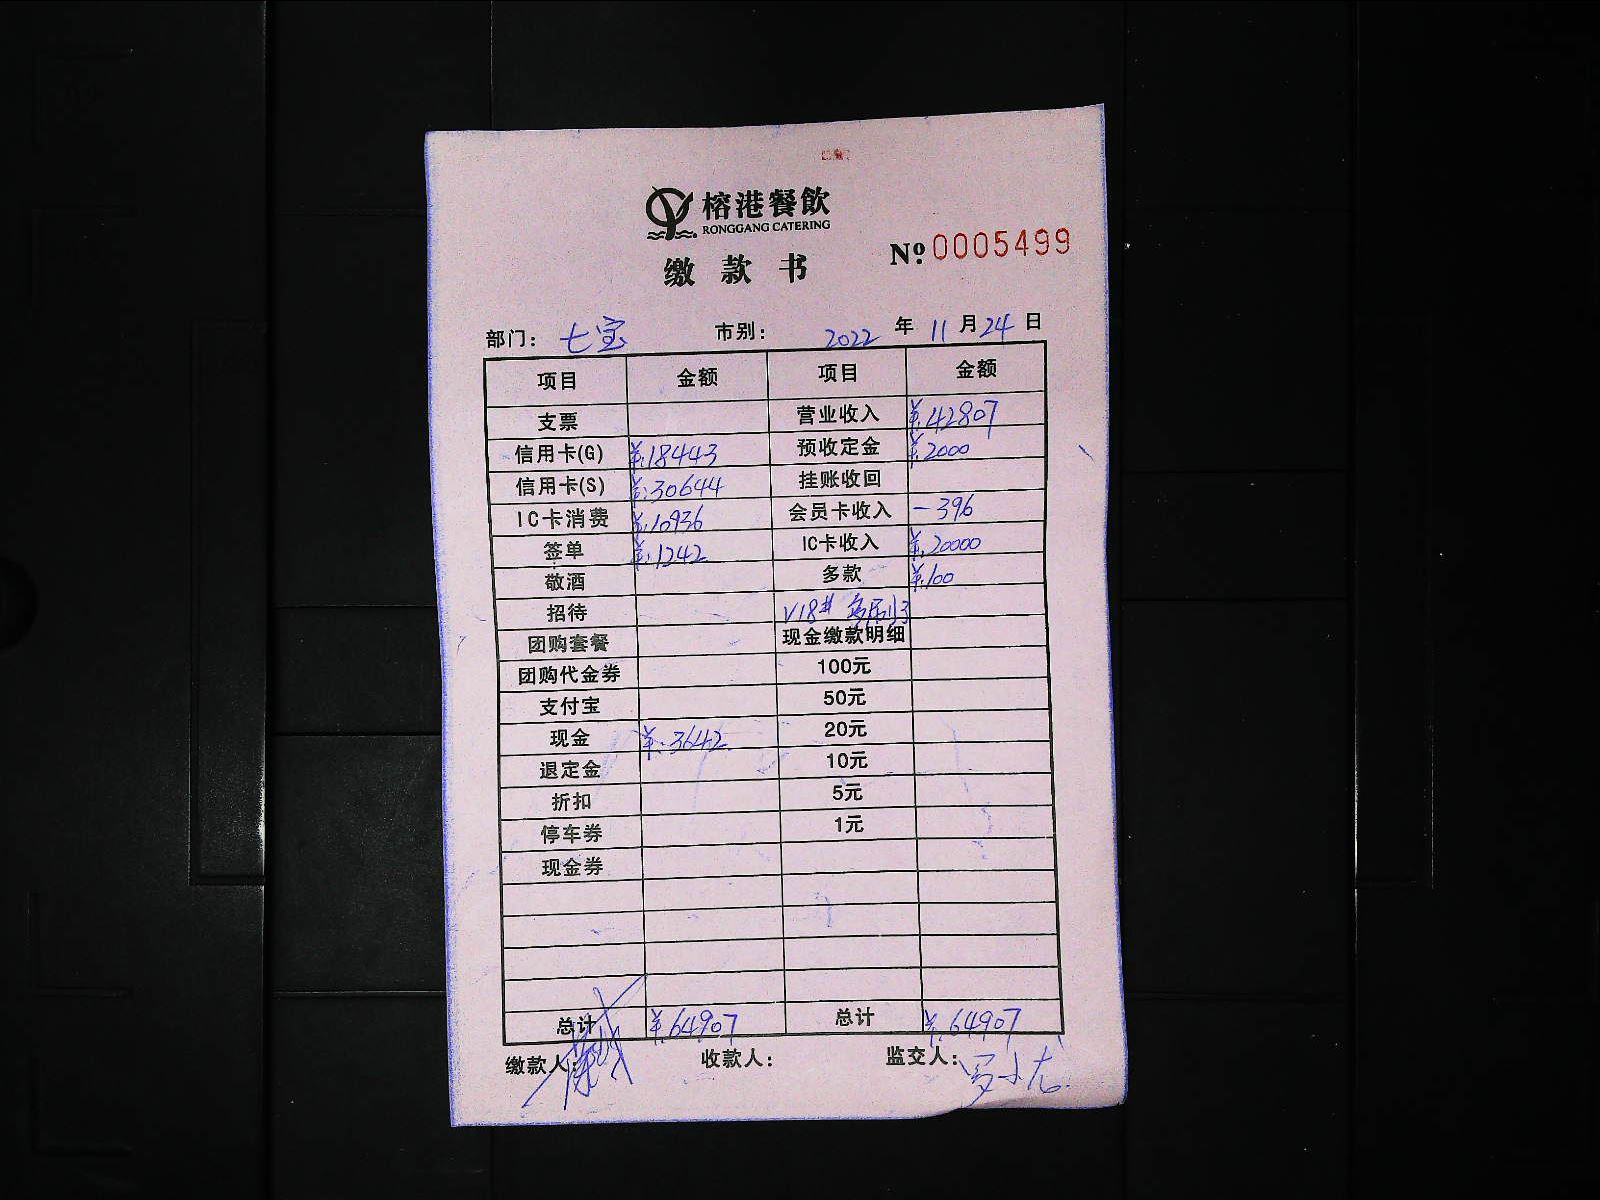 榕港餐飲
RONGGANG CATERING
缴款书
Nº 0005499
部门： 七宝 市别： 2022 年 11 月 24 日
项目 金额 项目 金额
支票 营业收入 ¥.42807
信用卡(G) ¥.18443 预收定金 ¥.2000
信用卡(S) ¥.30644 挂账收回
IC卡消费 ¥.10936 会员卡收入 -396
签单 ¥.1242 IC卡收入 ¥.20000
敬酒 多款 ¥.100
招待 V18#
团购套餐 现金缴款明细
团购代金券 100元
支付宝 50元
现金 ¥.3642 20元
退定金 10元
折扣 5元
停车券 1元
现金券
总计 ¥.64907 总计 ¥.64907
缴款人： 收款人： 监交人： 罗小龙